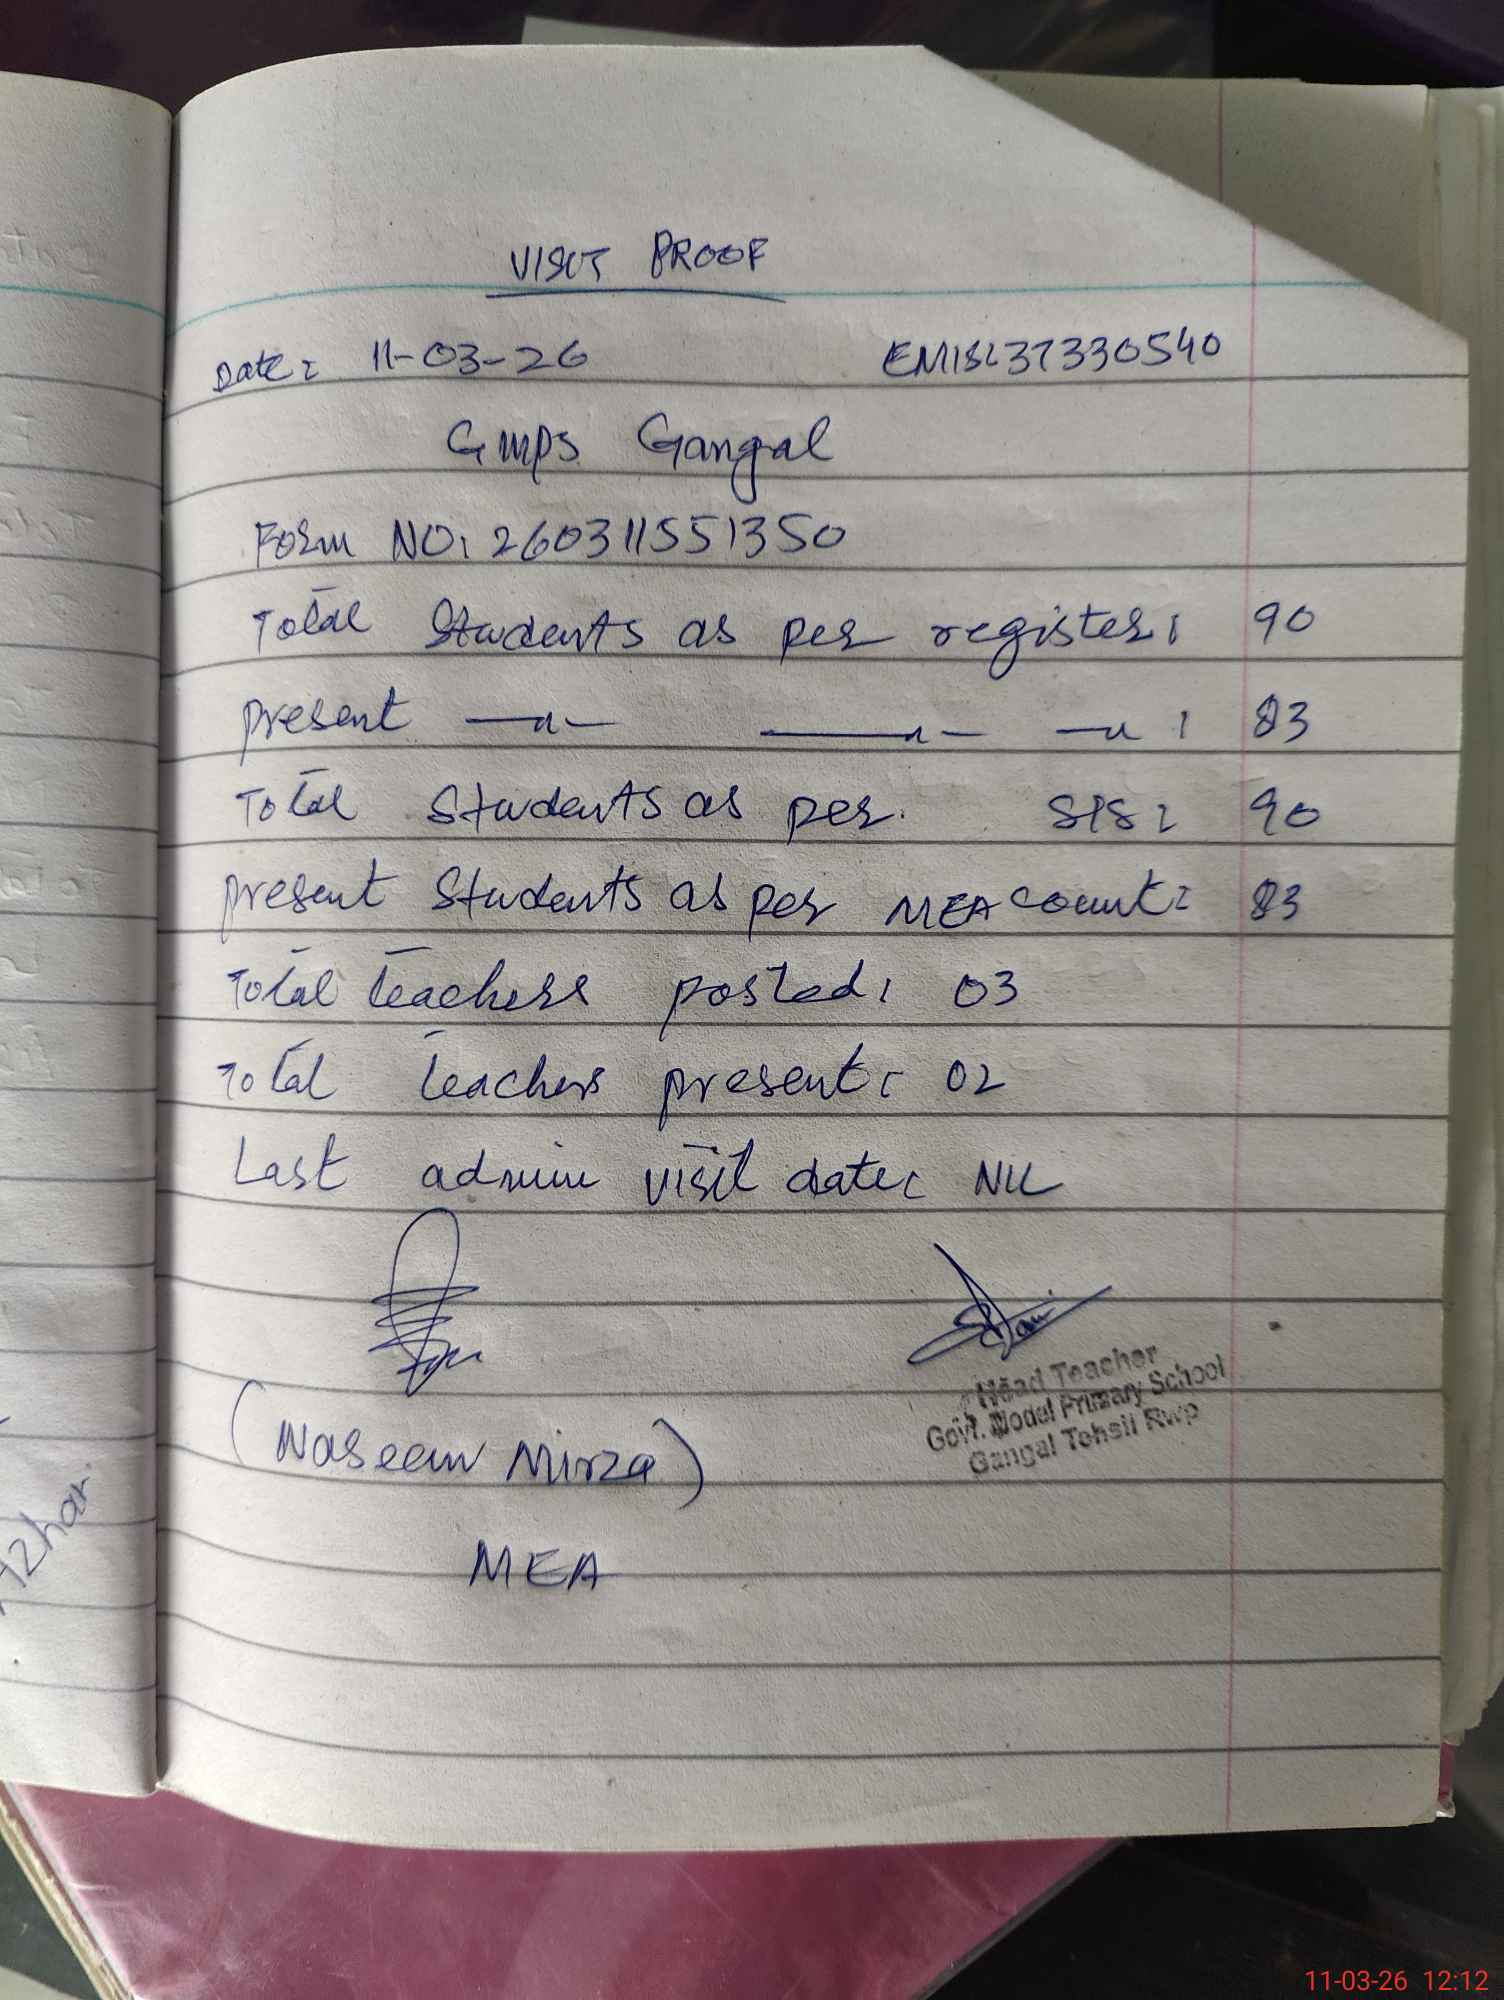 VISIT PROOF
Date: 11-03-26 EMIS: 37330540
GMPS Gangal
Form NO: 260311551350
Total Students as per register: 90
present —〃— —〃— —〃— : 83
Total Students as per SIS: 90
present Students as per MEA count: 83
Total teachers posted: 03
Total teachers present: 02
Last admin visit date: NIL
Head Teacher
Govt. Model Primary School
Gangal Tehsil Rwp
(Naseem Mirza)
MEA
Azhar
11-03-26 12:12